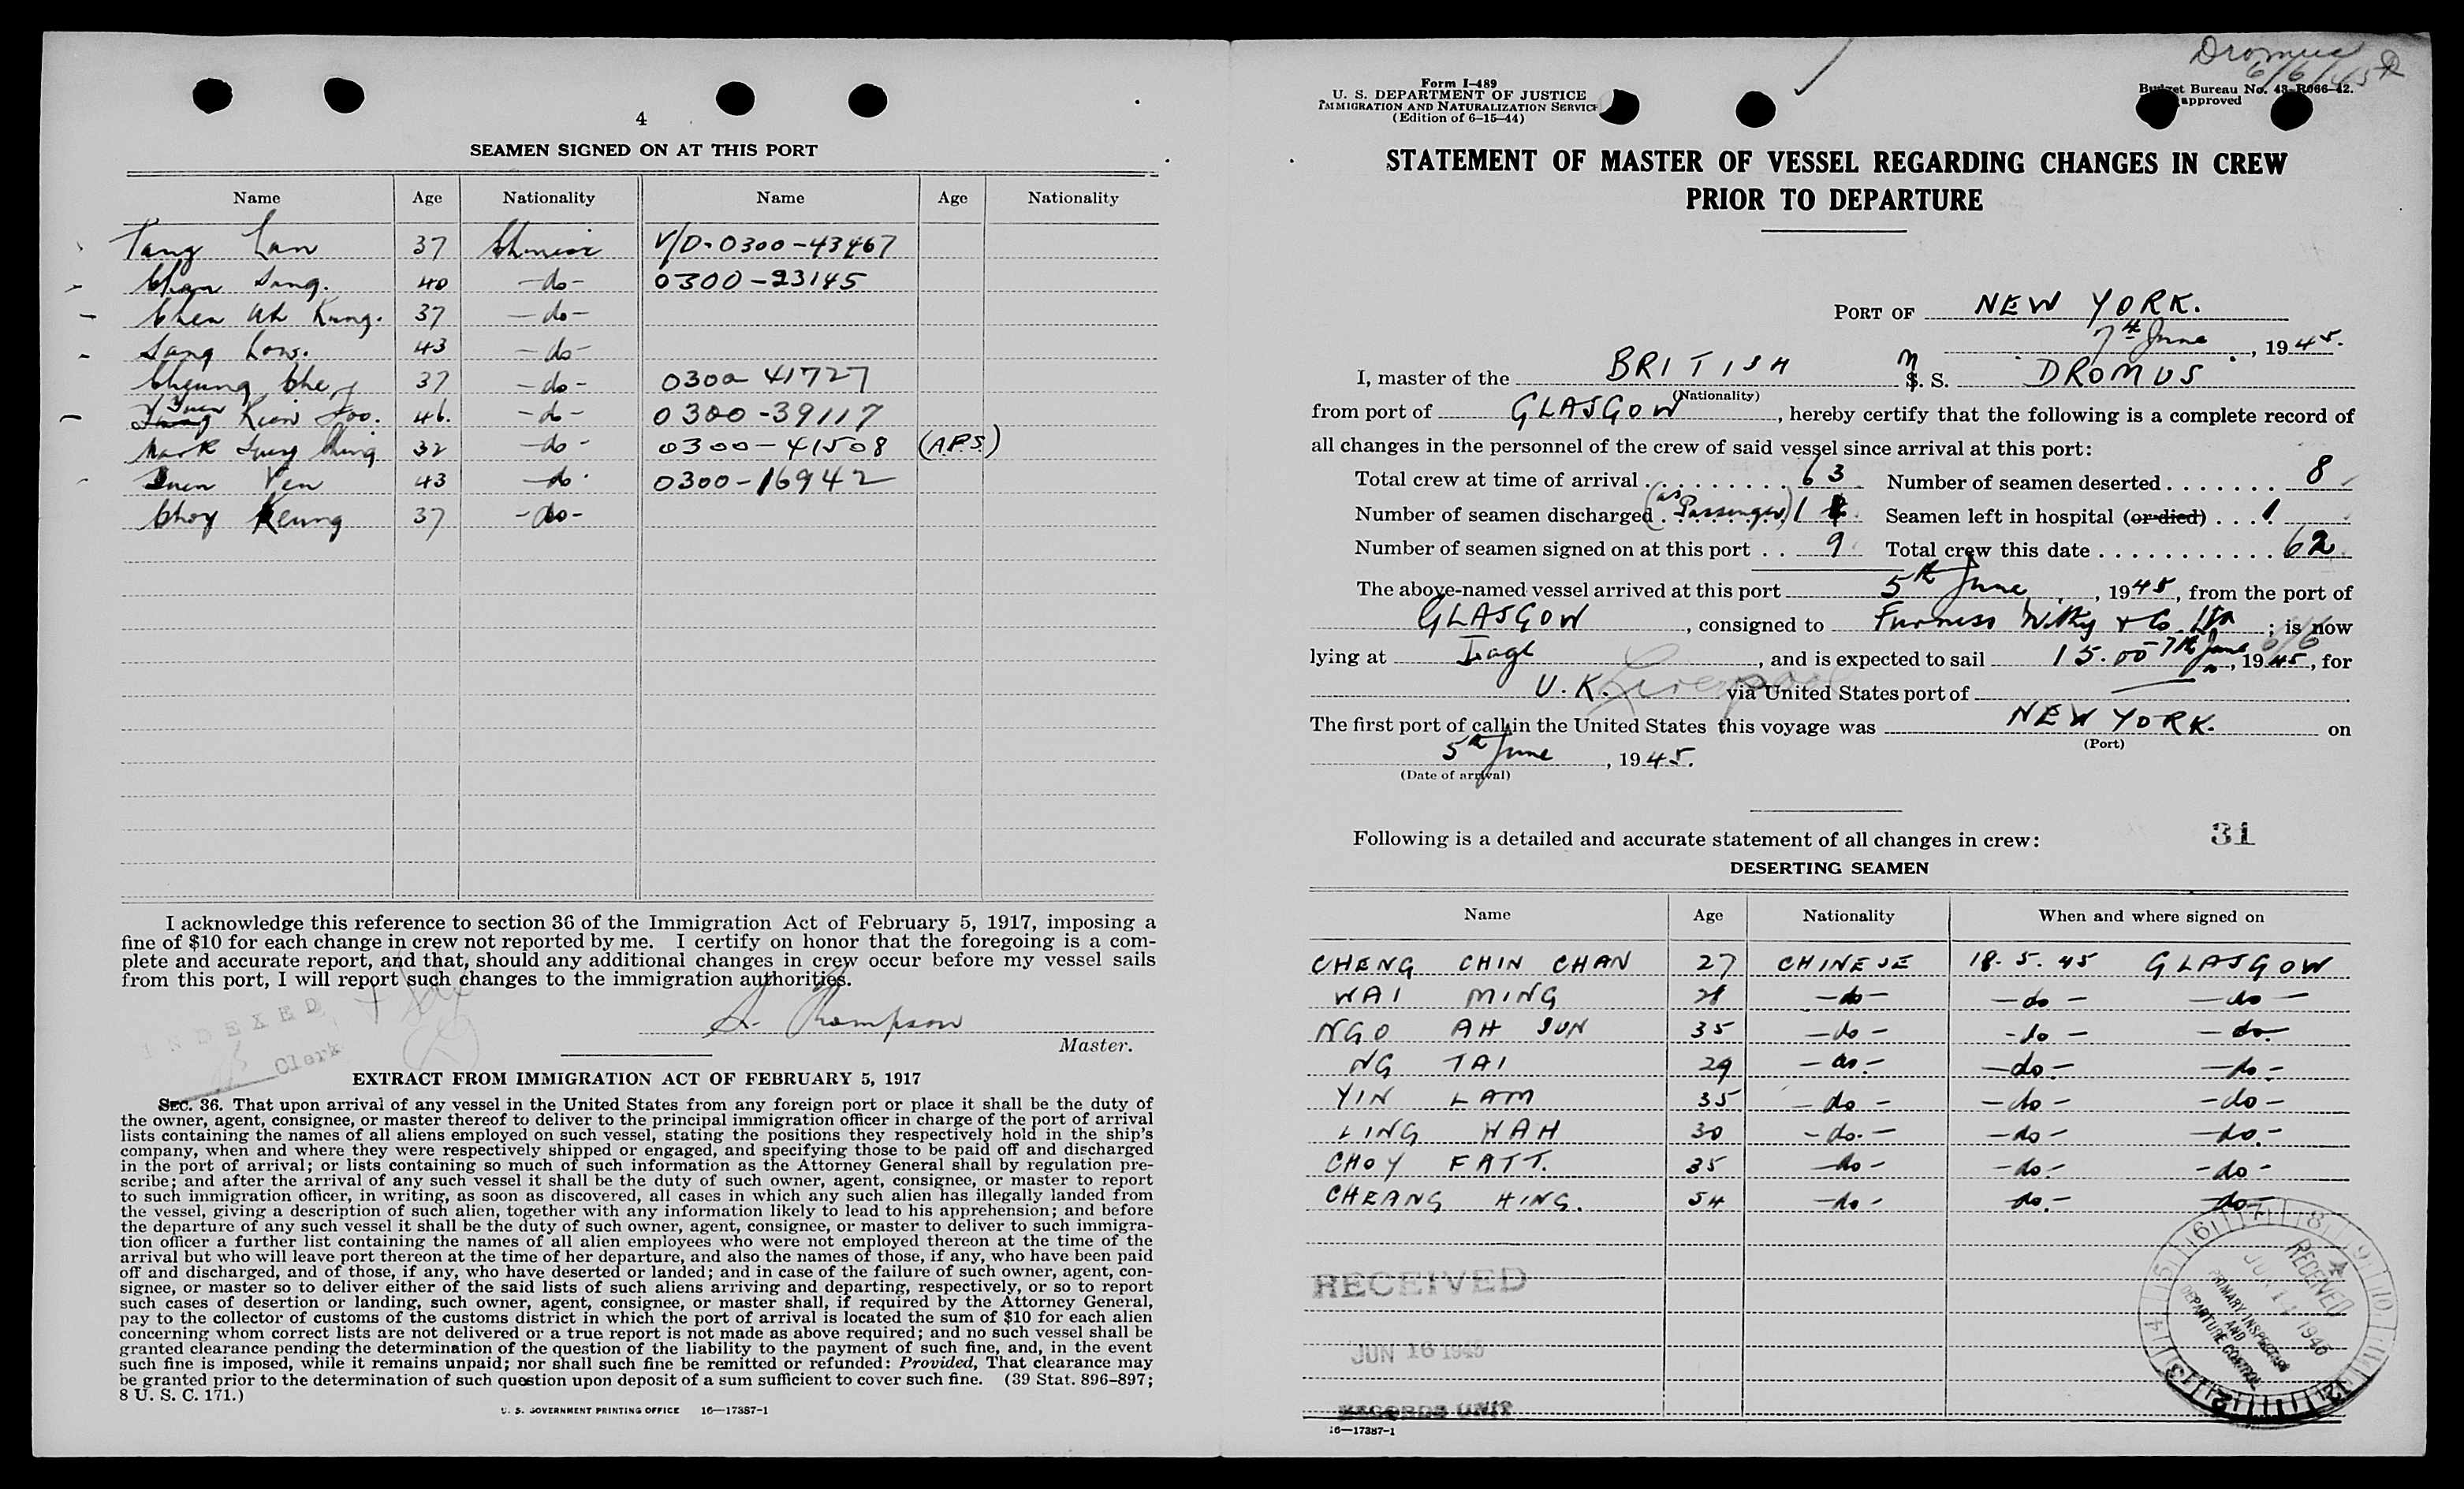 4
SEAMEN SIGNED ON AT THIS PORT
Name Age Nationality Name Age Nationality
Tang Lan 37 Chinese V/D. 0300-43467
Chan Sang. 40 -do- 0300-23145
Chen Ah Kung. 37 -do-
Sang Low. 43 -do-
Cheung Chey 37 -do- 0300 41727
Yuen Kien Foo. 46. -do- 0300-39117
Mark Sung Ching 32 -do- 0300-41508 (A.P.S.)
Yuen Yen 43 -do- 0300-16942
Choy Keung 37 -do-
I acknowledge this reference to section 36 of the Immigration Act of February 5, 1917, imposing a
fine of $10 for each change in crew not reported by me. I certify on honor that the foregoing is a com-
plete and accurate report, and that, should any additional changes in crew occur before my vessel sails
from this port, I will report such changes to the immigration authorities.
INDEXED
Clerk
Thompson
Master.
EXTRACT FROM IMMIGRATION ACT OF FEBRUARY 5, 1917
SEC. 36. That upon arrival of any vessel in the United States from any foreign port or place it shall be the duty of
the owner, agent, consignee, or master thereof to deliver to the principal immigration officer in charge of the port of arrival
lists containing the names of all aliens employed on such vessel, stating the positions they respectively hold in the ship's
company, when and where they were respectively shipped or engaged, and specifying those to be paid off and discharged
in the port of arrival; or lists containing so much of such information as the Attorney General shall by regulation pre-
scribe; and after the arrival of any such vessel it shall be the duty of such owner, agent, consignee, or master to report
to such immigration officer, in writing, as soon as discovered, all cases in which any such alien has illegally landed from
the vessel, giving a description of such alien, together with any information likely to lead to his apprehension; and before
the departure of any such vessel it shall be the duty of such owner, agent, consignee, or master to deliver to such immigra-
tion officer a further list containing the names of all alien employees who were not employed thereon at the time of the
arrival but who will leave port thereon at the time of her departure, and also the names of those, if any, who have been paid
off and discharged, and of those, if any, who have deserted or landed; and in case of the failure of such owner, agent, con-
signee, or master so to deliver either of the said lists of such aliens arriving and departing, respectively, or so to report
such cases of desertion or landing, such owner, agent, consignee, or master shall, if required by the Attorney General,
pay to the collector of customs of the customs district in which the port of arrival is located the sum of $10 for each alien
concerning whom correct lists are not delivered or a true report is not made as above required; and no such vessel shall be
granted clearance pending the determination of the question of the liability to the payment of such fine, and, in the event
such fine is imposed, while it remains unpaid; nor shall such fine be remitted or refunded: Provided, That clearance may
be granted prior to the determination of such question upon deposit of a sum sufficient to cover such fine. (39 Stat. 896-897;
8 U. S. C. 171.)
U. S. GOVERNMENT PRINTING OFFICE 16—17387-1
Dromus
6/6/45
Form I-489
U. S. DEPARTMENT OF JUSTICE
IMMIGRATION AND NATURALIZATION SERVICE
(Edition of 6-15-44)
Budget Bureau No. 43-R066-42.
approved
STATEMENT OF MASTER OF VESSEL REGARDING CHANGES IN CREW
PRIOR TO DEPARTURE
PORT OF NEW YORK.
7th June, 1945.
I, master of the BRITISH M S. S. DROMUS
(Nationality)
from port of GLASGOW, hereby certify that the following is a complete record of
all changes in the personnel of the crew of said vessel since arrival at this port:
Total crew at time of arrival 63 Number of seamen deserted 8
Number of seamen discharged (as Passenger) 1 Seamen left in hospital (or died) 1
Number of seamen signed on at this port 9 Total crew this date 62
The above-named vessel arrived at this port 5th June, 1945, from the port of
GLASGOW, consigned to Furness Withy & Co. Ltd; is now
lying at , and is expected to sail 15.00 7th June, 1945, for
U.K. Liverpool via United States port of
The first port of call in the United States this voyage was NEW YORK. on
(Port)
5th June, 1945.
(Date of arrival)
Following is a detailed and accurate statement of all changes in crew: 31
DESERTING SEAMEN
Name Age Nationality When and where signed on
CHENG CHIN CHAN 27 CHINESE 18.5.45 GLASGOW
WAI MING 28 -do- -do- -do-
NGO AH SUN 35 -do- -do- -do-
NG TAI 29 -do- -do- -do-
YIN LAM 35 -do- -do- -do-
LING WAH 30 -do- -do- -do-
CHOY FATT. 35 -do- -do- -do-
CHEANG HING. 54 -do- -do- -do-
RECEIVED
JUN 16 1945
RECORDS UNIT
RECEIVED
PRIMARY INSPECTION
AND
DEPARTURE CONTROL
16—17387-1